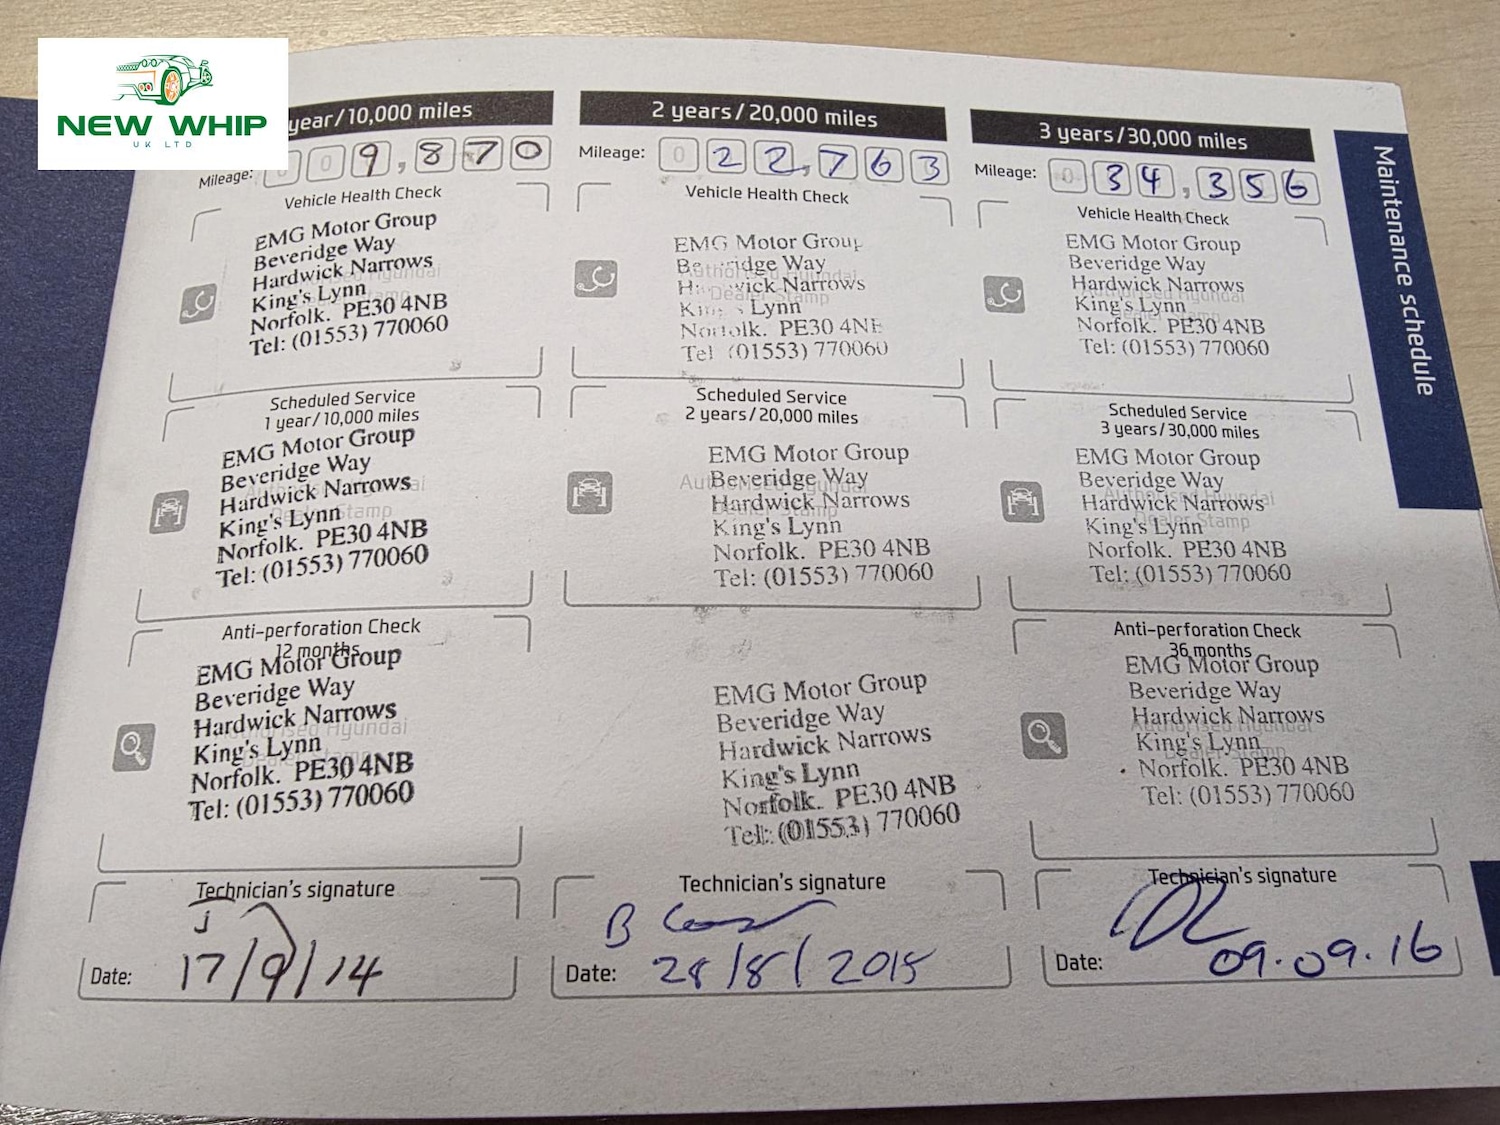 NEW WHIP
UK LTD
year/10,000 miles
Mileage: 0 9,870
Vehicle Health Check
EMG Motor Group
Beveridge Way
Hardwick Narrows
King's Lynn
Norfolk. PE30 4NB
Tel: (01553) 770060
Scheduled Service
1 year/10,000 miles
EMG Motor Group
Beveridge Way
Hardwick Narrows
King's Lynn
Norfolk. PE30 4NB
Tel: (01553) 770060
Anti-perforation Check
12 months
EMG Motor Group
Beveridge Way
Hardwick Narrows
King's Lynn
Norfolk. PE30 4NB
Tel: (01553) 770060
Technician's signature
Date: 17/9/14
2 years/20,000 miles
Mileage: 0 22,763
Vehicle Health Check
EMG Motor Group
Beveridge Way
Hardwick Narrows
King's Lynn
Norfolk. PE30 4NB
Tel (01553) 770060
Authorised Hyundai
Dealer Stamp
Scheduled Service
2 years/20,000 miles
EMG Motor Group
Beveridge Way
Hardwick Narrows
King's Lynn
Norfolk. PE30 4NB
Tel: (01553) 770060
Authorised Hyundai
Dealer Stamp
EMG Motor Group
Beveridge Way
Hardwick Narrows
King's Lynn
Norfolk. PE30 4NB
Tel: (01553) 770060
Technician's signature
Date: 28/8/2015
3 years/30,000 miles
Mileage: 0 34,356
Vehicle Health Check
EMG Motor Group
Beveridge Way
Hardwick Narrows
King's Lynn
Norfolk. PE30 4NB
Tel: (01553) 770060
Authorised Hyundai
Dealer Stamp
Scheduled Service
3 years/30,000 miles
EMG Motor Group
Beveridge Way
Hardwick Narrows
King's Lynn
Norfolk. PE30 4NB
Tel: (01553) 770060
Authorised Hyundai
Dealer Stamp
Anti-perforation Check
36 months
EMG Motor Group
Beveridge Way
Hardwick Narrows
King's Lynn
Norfolk. PE30 4NB
Tel: (01553) 770060
Authorised Hyundai
Dealer Stamp
Technician's signature
Date: 09.09.16
Maintenance schedule